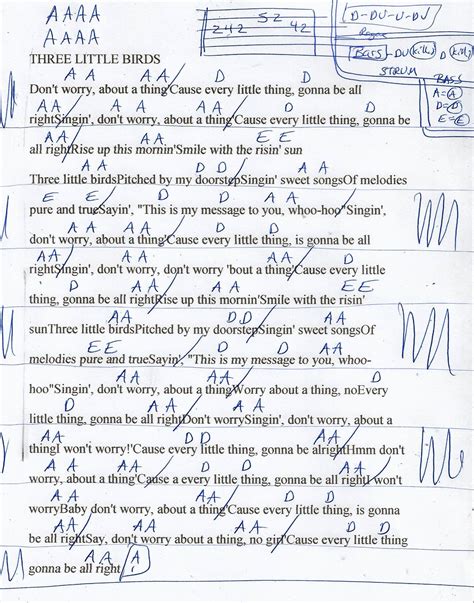 A A A A
A A A A
52
242 42
D-DU-U-DU
Bars-DU(kill) D(kill)
STRUM
BASS
A=A
D=D
E=E
THREE LITTLE BIRDS
A A A A D D
Don't worry, about a thing'Cause every little thing, gonna be all
A A A A A A D
rightSingin', don't worry, about a thing'Cause every little thing, gonna be
A A A A E E
all rightRise up this mornin'Smile with the risin' sun
A A D D A A
Three little birdsPitched by my doorstepSingin' sweet songsOf melodies
E E D D A A
pure and trueSayin', "This is my message to you, whoo-hoo"Singin',
A A A A D D
don't worry, about a thing'Cause every little thing, is gonna be all
A A A A A A
rightSingin', don't worry, don't worry 'bout a thing'Cause every little
D A A A A E E
thing, gonna be all rightRise up this mornin'Smile with the risin'
A A D D A A
sunThree little birdsPitched by my doorstepSingin' sweet songsOf
E E D D
melodies pure and trueSayin', "This is my message to you, whoo-
A A A A D
hoo"Singin', don't worry, about a thingWorry about a thing, noEvery
D A A A A
little thing, gonna be all rightDon't worrySingin', don't worry, about a
A A D D A A
thingI won't worry!'Cause every little thing, gonna be alrightHmm don't
A A D D A A
worry, about a thing'Cause a every little thing, gonna be all rightI won't
A A D D
worryBaby don't worry, about a thing'Cause every little thing, is gonna
A A A A D D
be all rightSay, don't worry, about a thing, no girl'Cause every little thing
A A A
gonna be all right